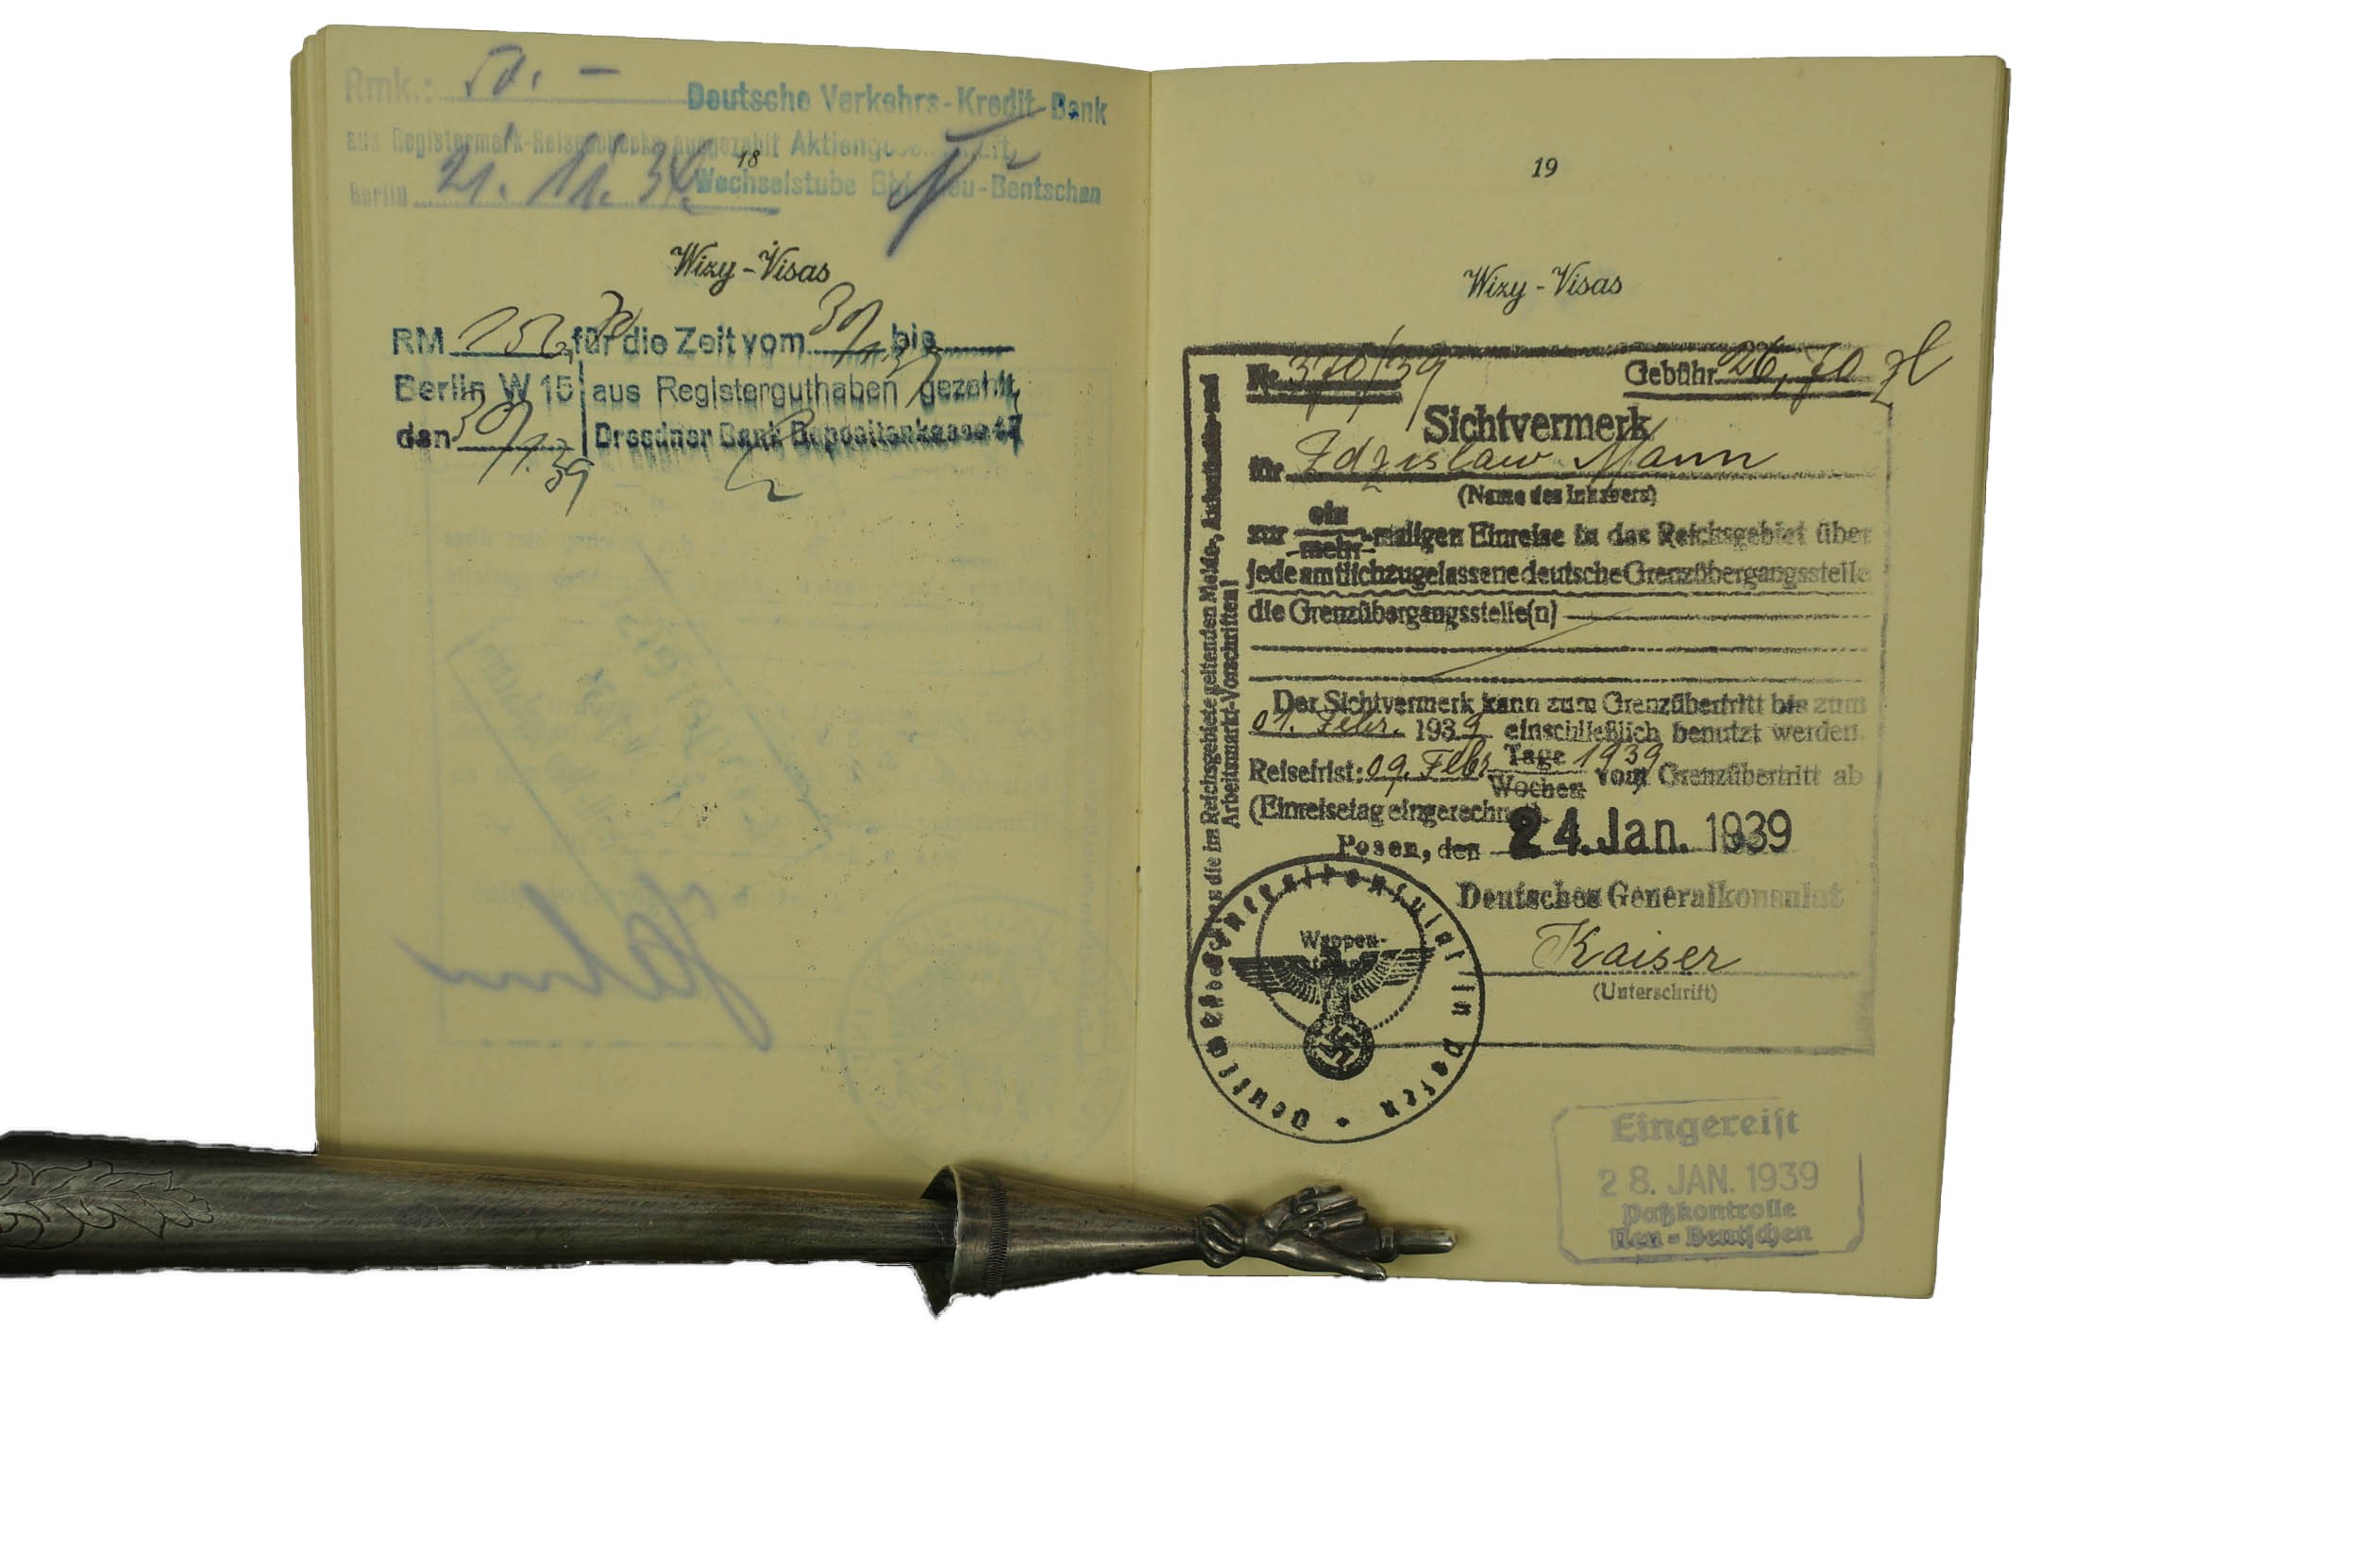 Rmk.: 50. –
Deutsche Verkehrs-Kredit-Bank
aus Registermark-Reiseschecks ausgezahlt
Aktiengesellschaft
18
Berlin 21. 11. 38.
Wechselstube Bhf. Neu-Bentschen
Wizy - Visas
RM für die Zeit vom 30/1.39 bis
Berlin W 15 aus Registerguthaben gezahlt,
den 30/1.39 Dresdner Bank Depositenkasse 47
19
Wizy - Visas
Nr. 370/39 Gebühr 26,70 zł
Sichtvermerk
für Zdzislaw Mann
(Name des Inhabers)
zur ein
mehr-maligen Einreise in das Reichsgebiet über
jede amtlich zugelassene deutsche Grenzübergangsstelle
die Grenzübergangsstelle(n)
Der Sichtvermerk kann zum Grenzübertritt bis zum
01. Febr. 1939 einschließlich benutzt werden.
Reisefrist: 09. Febr. Tage 1939
Wochen vom Grenzübertritt ab
(Einreisetag eingerechnet).
Posen, den 24. Jan. 1939
Deutsches Generalkonsulat
Kaiser
(Unterschrift)
die im Reichsgebiete geltenden Melde-, Aufenthalts- und
Arbeitsmarkt-Vorschriften!
Deutsches Generalkonsulat in Posen
Wappen-
Eingereist
28. JAN. 1939
Paßkontrolle
Neu-Bentschen